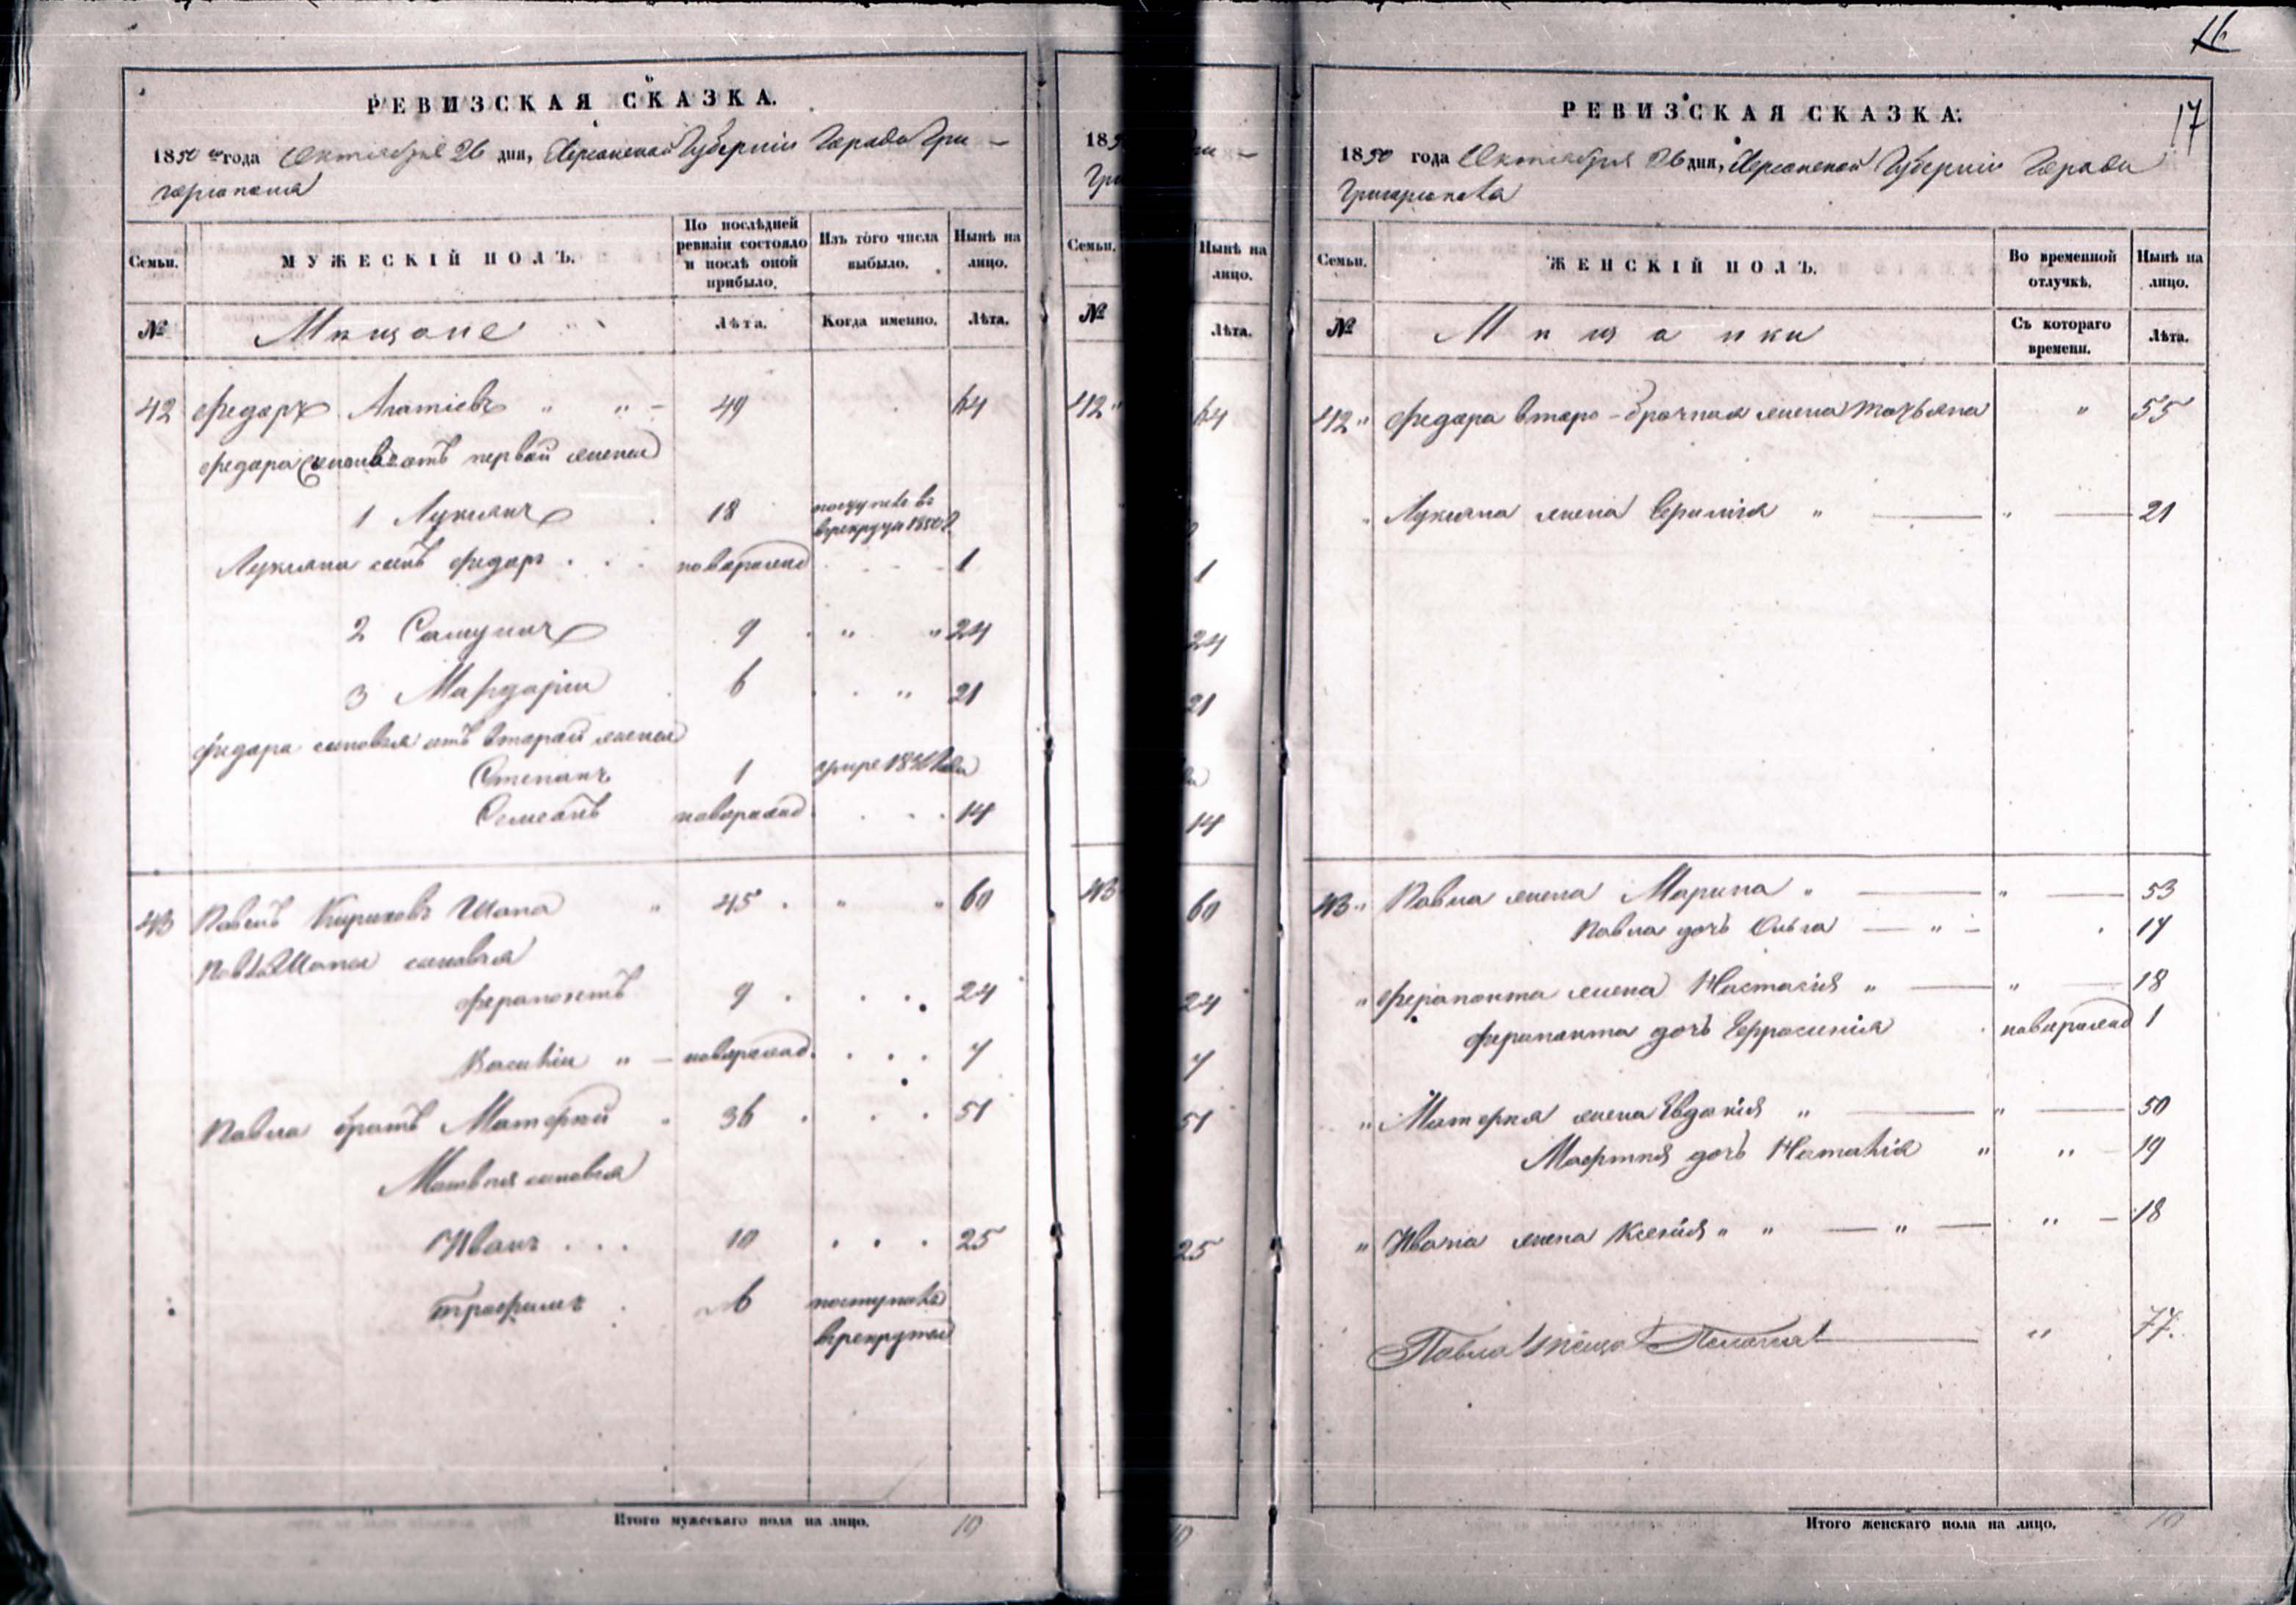 РЕВИЗСКАЯ СКАЗКА.
1850 го года Октября 26 дня, Херсонской Губернiи Города Гри-
горiополя
Семьи.
МУЖЕСКIЙ ПОЛЪ.
По послѣдней ревизiи состояло и послѣ оной прибыло.
Изъ того числа выбыло.
Нынѣ на лицо.
№
Мѣщане
Лѣта.
Когда именно.
Лѣта.
42 Федоръ " " - 49 64
Федора сыновья отъ первой жены
1 Лукианъ 18 поступилъ въ
врекруты 1850 г.
Лукиана сынъ Федоръ . . . новорожд . - - - 1
2 9 . " " 24
3 Мардарiй . 6 . . " 21
Федора сыновья отъ второй жены
Степанъ 1 года
Семенъ новорожд . . . . 14
43 Павелъ Кириловъ Шапа " 45 . " " 60
Шапы сыновья
Ферапонтъ 9 . . . 24
Василiй " - новорожд . . . . 7
Павла братъ Матфей . 36 . . . 51
Матвѣя сыновья
Иванъ . . . 10 . . . 25
Трофимъ . поступилъ
врекруты
Итого мужескаго пола на лицо. 10
185
Гри
Семьи.
Нынѣ на лицо.
№
Лѣта.
42 "
64
1
24
21
14
43
60
24
7
51
25
16
17
РЕВИЗСКАЯ СКАЗКА.
1850 года Октября 26 дня, Херсонской Губернiи Города
Григорiополя
Семьи.
ЖЕНСКIЙ ПОЛЪ.
Во временной отлучкѣ.
Нынѣ на лицо.
№
Мѣщанки
Съ котораго времени.
Лѣта.
42 " Федора второ-брачная жена Татьяна " 55
" Лукиана жена " — " — 21
43 " Павла жена Марина " — " — 53
Павла дочь Ольга — " - . 14
" Ферапонта жена Настасiя " — " — 18
Ферапонта дочь . новорожд 1
" Матфея жена Евдокiя " — " — 50
Матфея дочь Наталiя " " - 19
" Ивана жена Ксенiя " " — " — " - 18
Павла тёща Пелагея — " 77.
Итого женскаго пола на лицо. 10